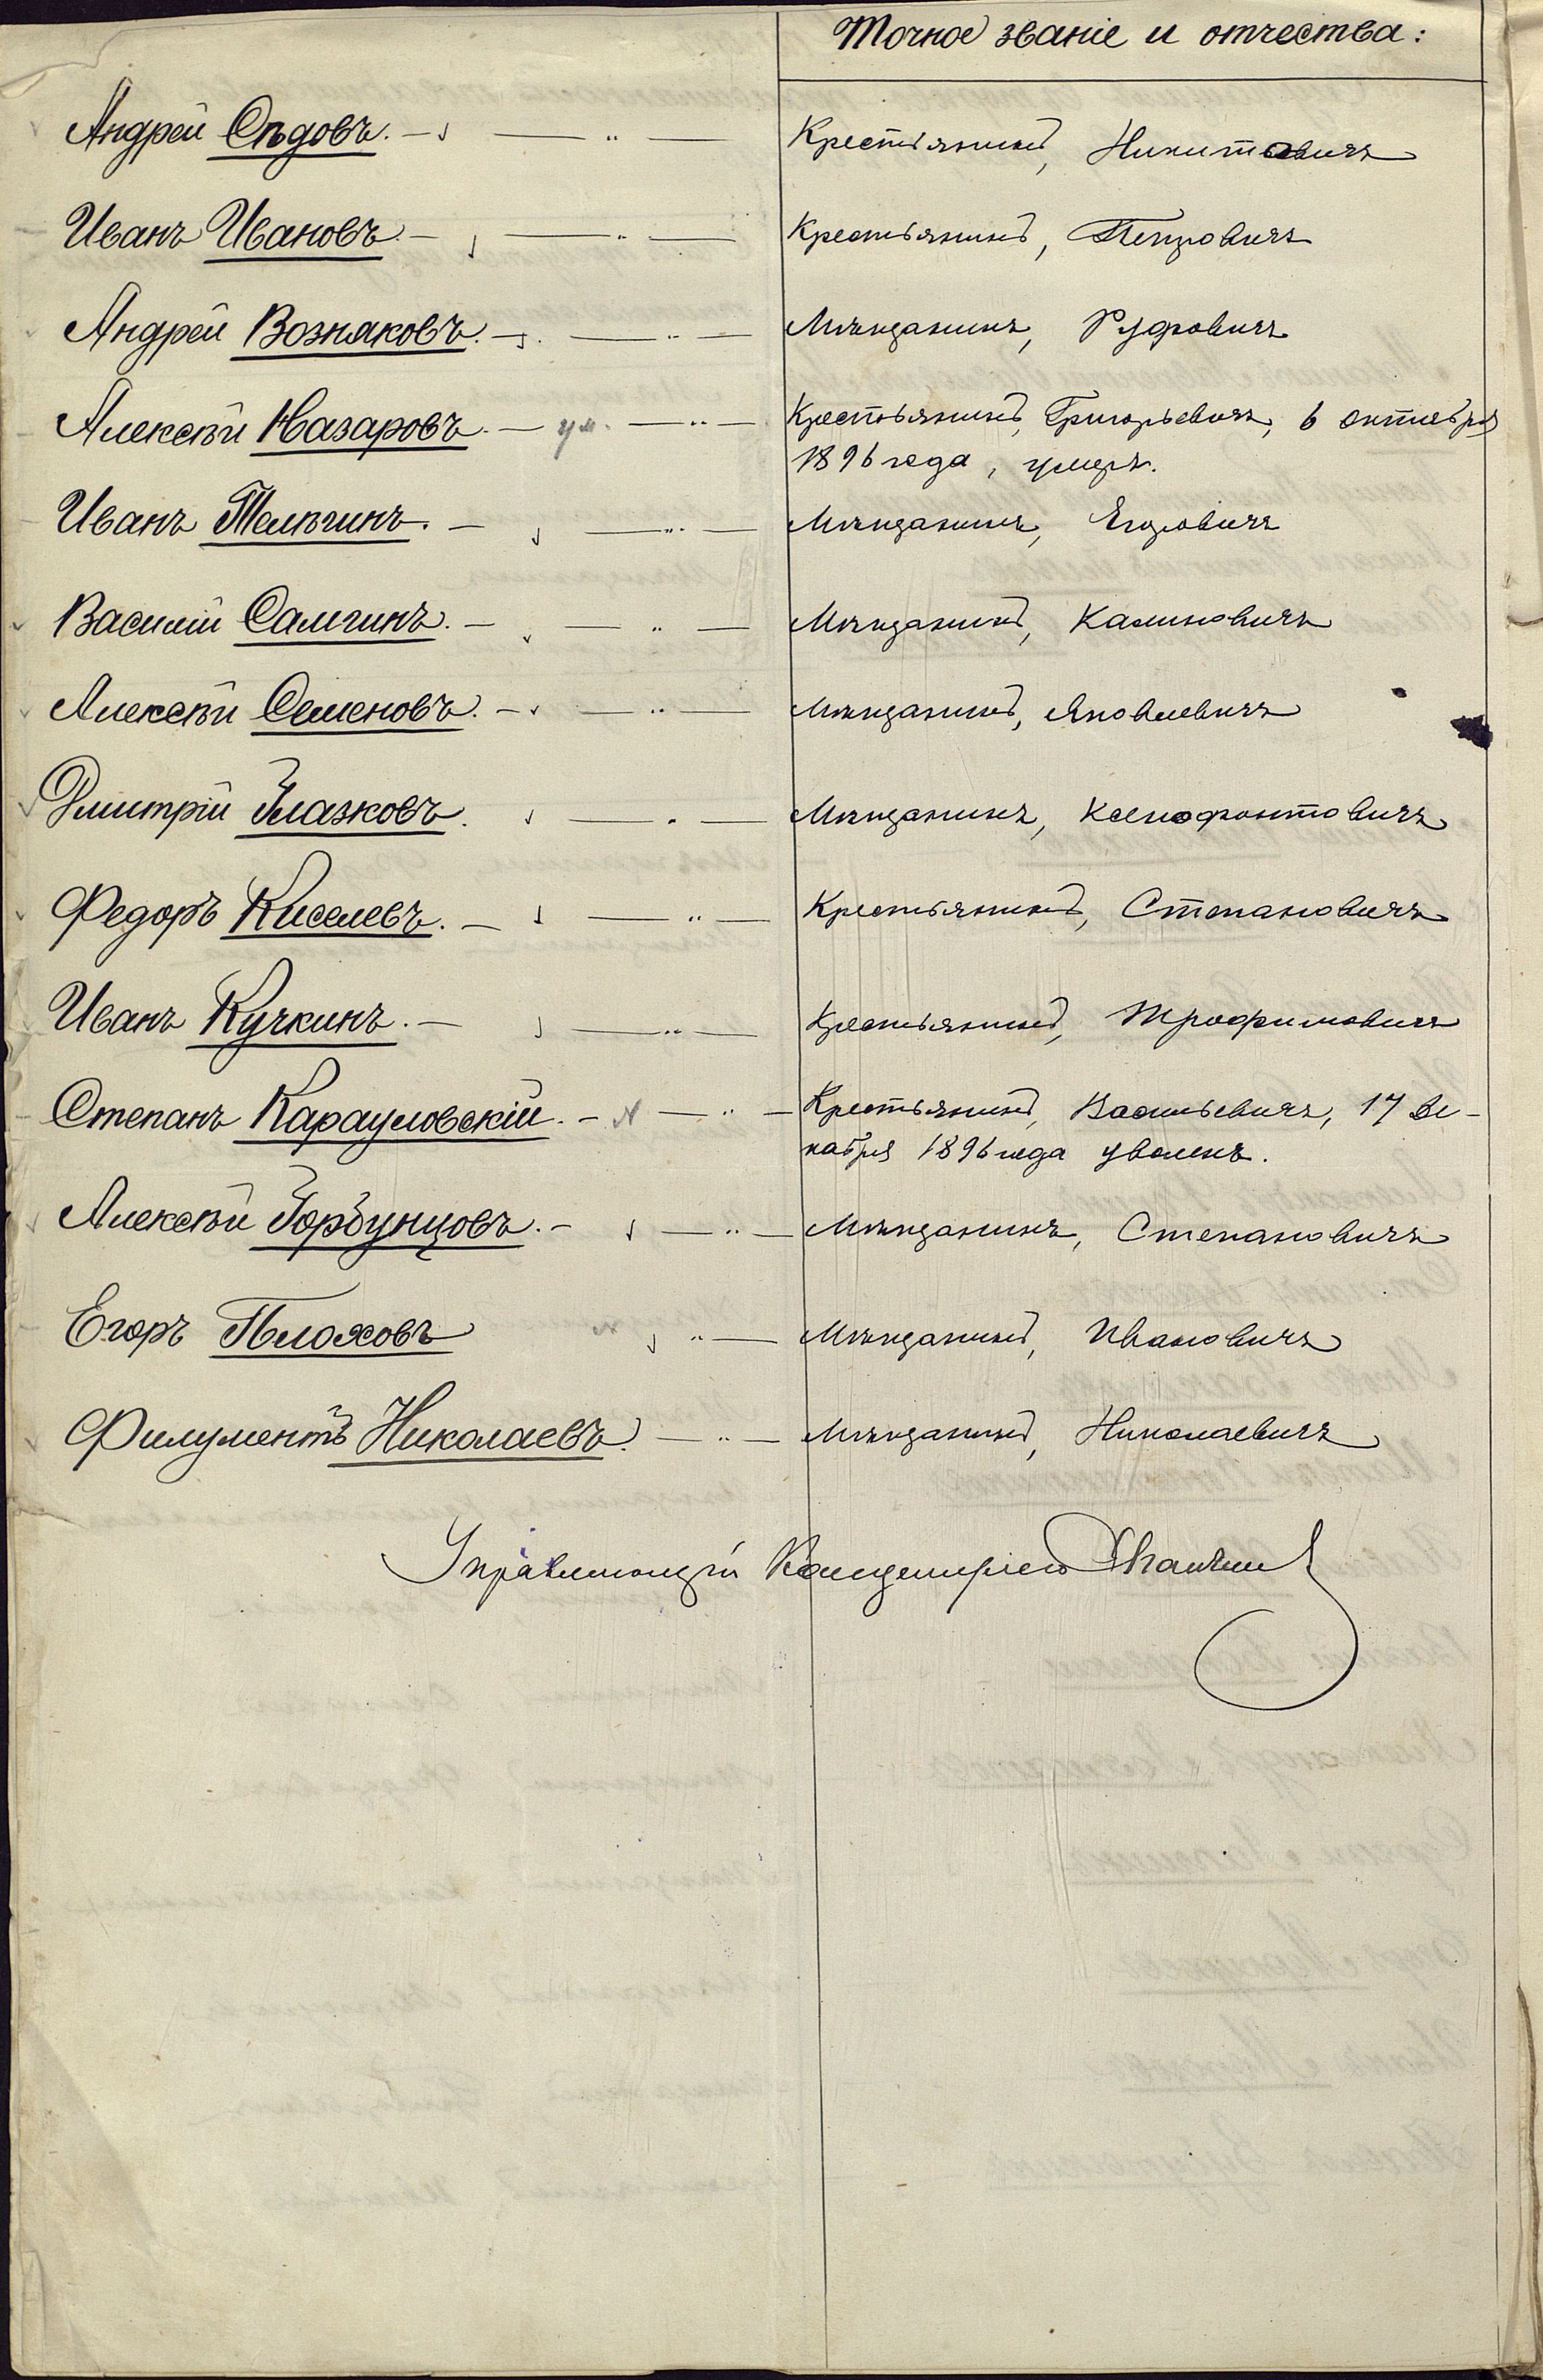 Точное званіе и отчества:
Андрей Сѣдовъ. — „ — Крестьянинъ, Никитовичъ
Иванъ Ивановъ. — „ — Крестьянинъ, Петровичъ
Андрей Возняковъ. — „ — Мѣщанинъ, Руфовичъ
Алексѣй Назаровъ. — ум. — „ — Крестьянинъ, Григорьевичъ, 6 октября
1896 года, умеръ.
Иванъ Телѣгинъ. — „ — Мѣщанинъ, Егоровичъ
Василій Самгинъ. — „ — Мѣщанинъ, Калиновичъ
Алексѣй Семеновъ. — „ — Мѣщанинъ, Яковлевичъ
Дмитрій Глазковъ. — „ — Мѣщанинъ, Ксенофонтовичъ
Федоръ Киселевъ. — „ — Крестьянинъ, Степановичъ
Иванъ Кучкинъ. — „ — Крестьянинъ, Трофимовичъ
Степанъ Карауловскій. — „ — Крестьянинъ, Васильевичъ, 17 де-
кабря 1896 года уволенъ.
Алексѣй Горбунцовъ. — „ — Мѣщанинъ, Степановичъ
Егоръ Плоховъ „ — Мѣщанинъ, Ивановичъ
Филументъ Николаевъ. — „ — Мѣщанинъ, Николаевичъ
Управляющій Канцеляріею